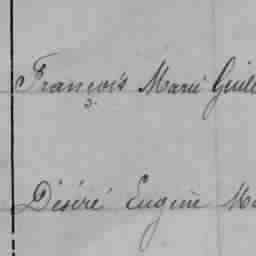 François Marie
Désiré Eugène